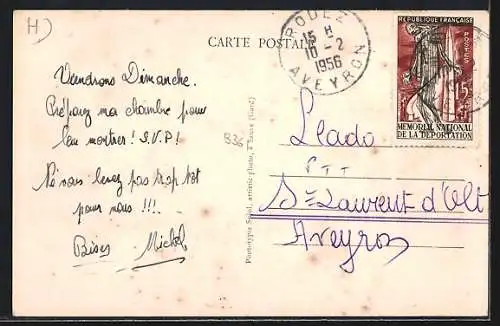 H)
CARTE POSTALE
RODEZ
15 H
10 - 2
1956
AVEYRON
REPUBLIQUE FRANÇAISE
POSTES
15F
MEMORIAL NATIONAL
DE LA DEPORTATION
Viendrons Dimanche.
Préparez ma chambre pour
montrer ! S.V.P !
Ne vous levez pas trop tôt
pour nous !!!.
Bises Michel
B36
Llado
PTT
St Laurent d'Olt
Aveyron